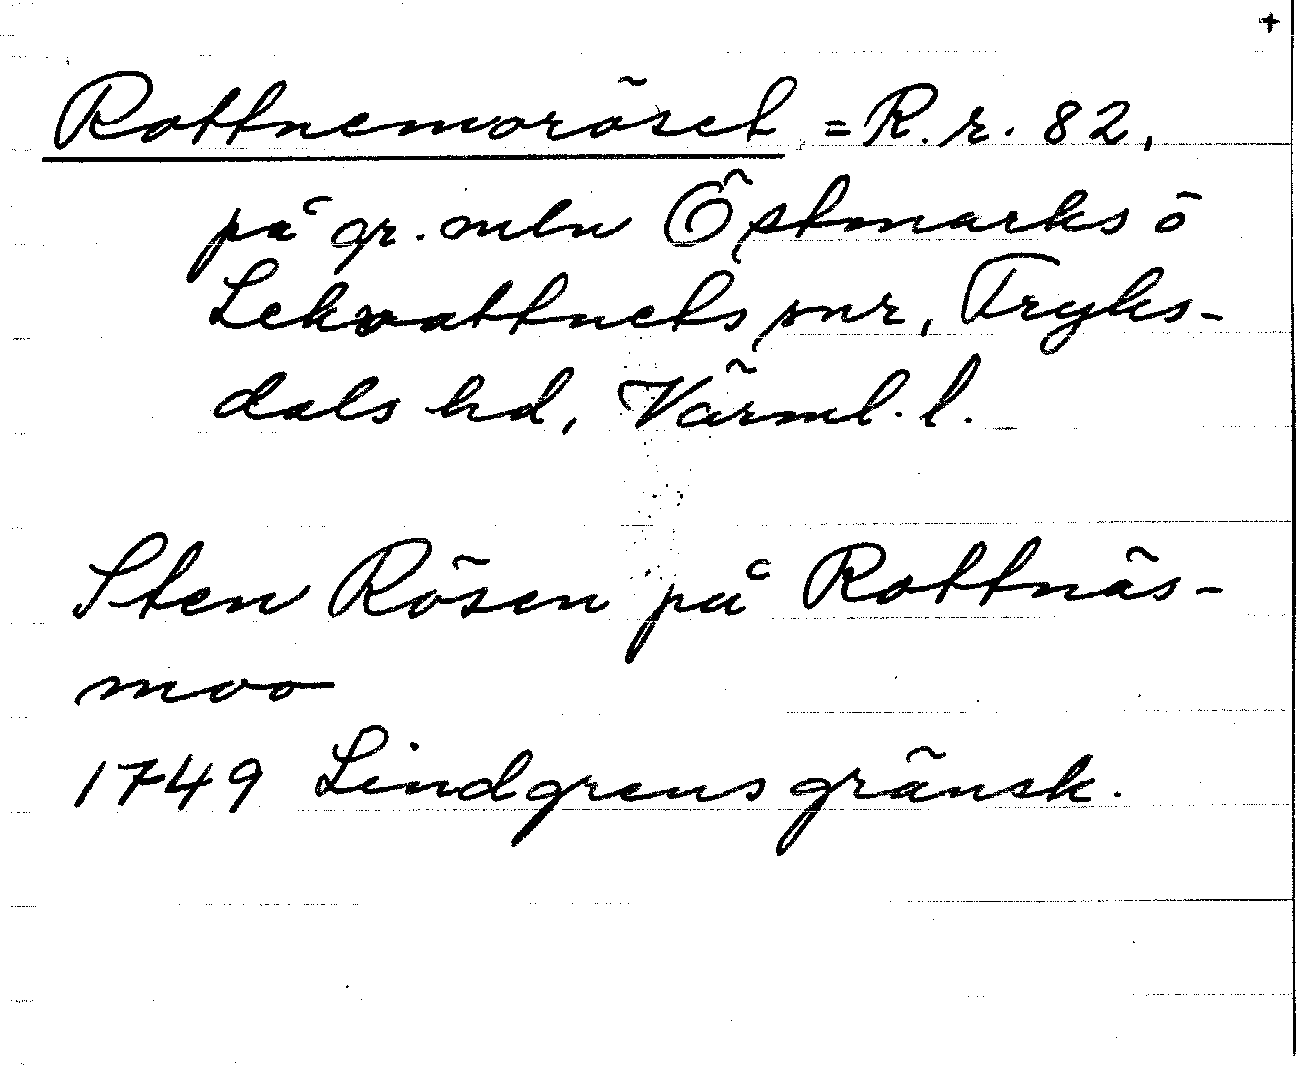 +
Rottnemoröset = R. r. 82,
på gr. mln Östmarks o
Lekvattnets snr, Fryks-
dals hd, Värml. l.
Sten Rösen på Rottnäs-
moo
1749 Lindgrens gränsk.